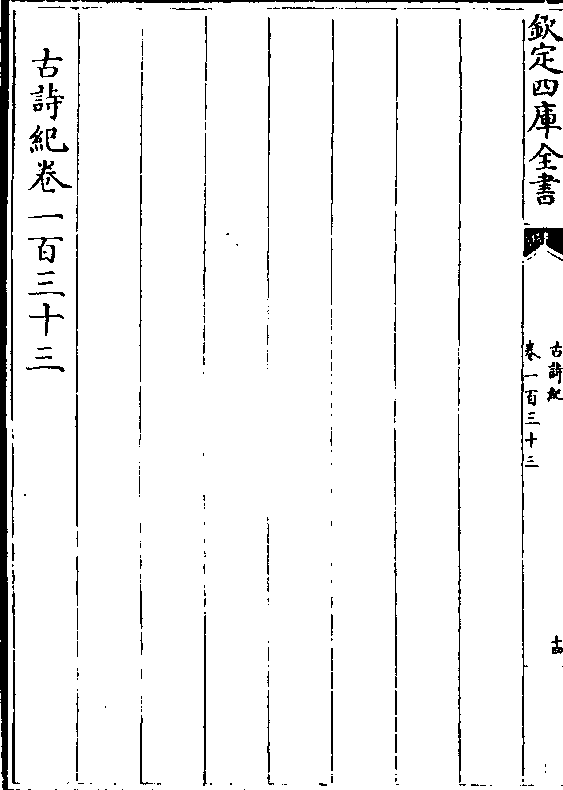 欽定四庫全書
古詩紀
卷一百三十三
十四
古詩紀卷一百三十三